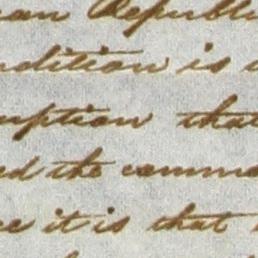 can Republi
ndition is
uption that
ed the comme
ce it is that